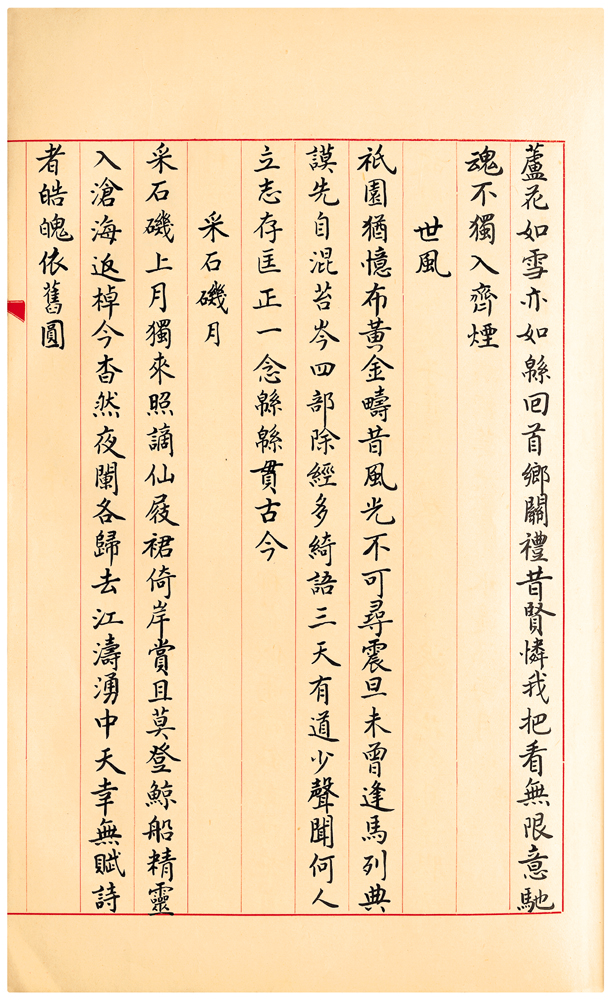 蘆花如雪亦如緜回首鄉關禮昔賢憐我把看無限意馳
魂不獨入齊煙
世風
祇園猶憶布黃金疇昔風光不可尋震旦未曾逢馬列典
謨先自混苔岑四部除經多綺語三天有道少聲聞何人
立志存匡正一念緜緜貫古今
采石磯月
采石磯上月獨來照謫仙屐裙倚岸賞且莫登鯨船精靈
入滄海返棹今杳然夜闌各歸去江濤湧中天幸無賦詩
者皓魄依舊圓